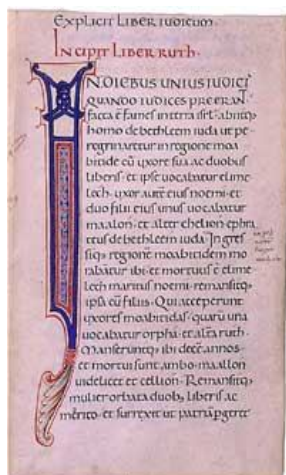 EXPLICIT LIBER IUDICUM.
INCIPIT LIBER RUTH.
IN DIEBUS UNIUS IUDICIS
QUANDO IUDICES PREERANT
facta ē fames in terra isrł. abiitq;
homo de bethleem iuda ut pe
regrinaretur in regione moa
bitide cū uxore sua ac duobus
liberis. et ipse uocabatur elime
lech. uxor autē eius noemi. et
duo filii eius unus uocabatur
maalon. et alter chelion ephra
teus de bethleem iuda. Ingres
siq; regionē moabitidem mo
rabantur ibi. et mortuus ē elime
lech maritus noemi. remansitq;
ipsa cū filiis. Qui acceperunt
uxores moabitidas. quarū una
uocabatur orpha. et altera ruth.
Manseruntq; ibi decē annos.
et mortui sunt ambo. maallon
uidelicet et cellion. Remansitq;
mulier orbata duob; liberis ac
mārito. et surrexit ut patriā pgeret